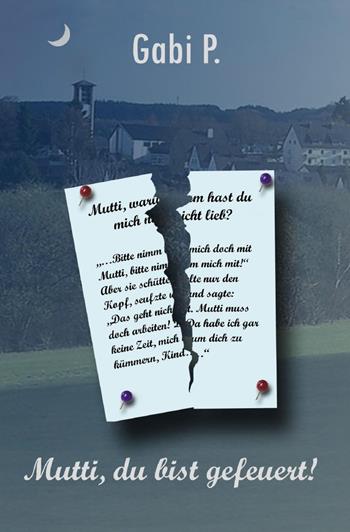 Gabi P.
Mutti, warum hast du
mich nicht lieb?
„...Bitte nimm mich doch mit
Mutti, bitte nimm mich mit!“
Aber sie schüttelte nur den
Kopf, seufzte und sagte:
„Das geht nicht. Mutti muss
doch arbeiten! Da habe ich gar
keine Zeit, mich um dich zu
kümmern, Kind...“
Mutti, du bist gefeuert!